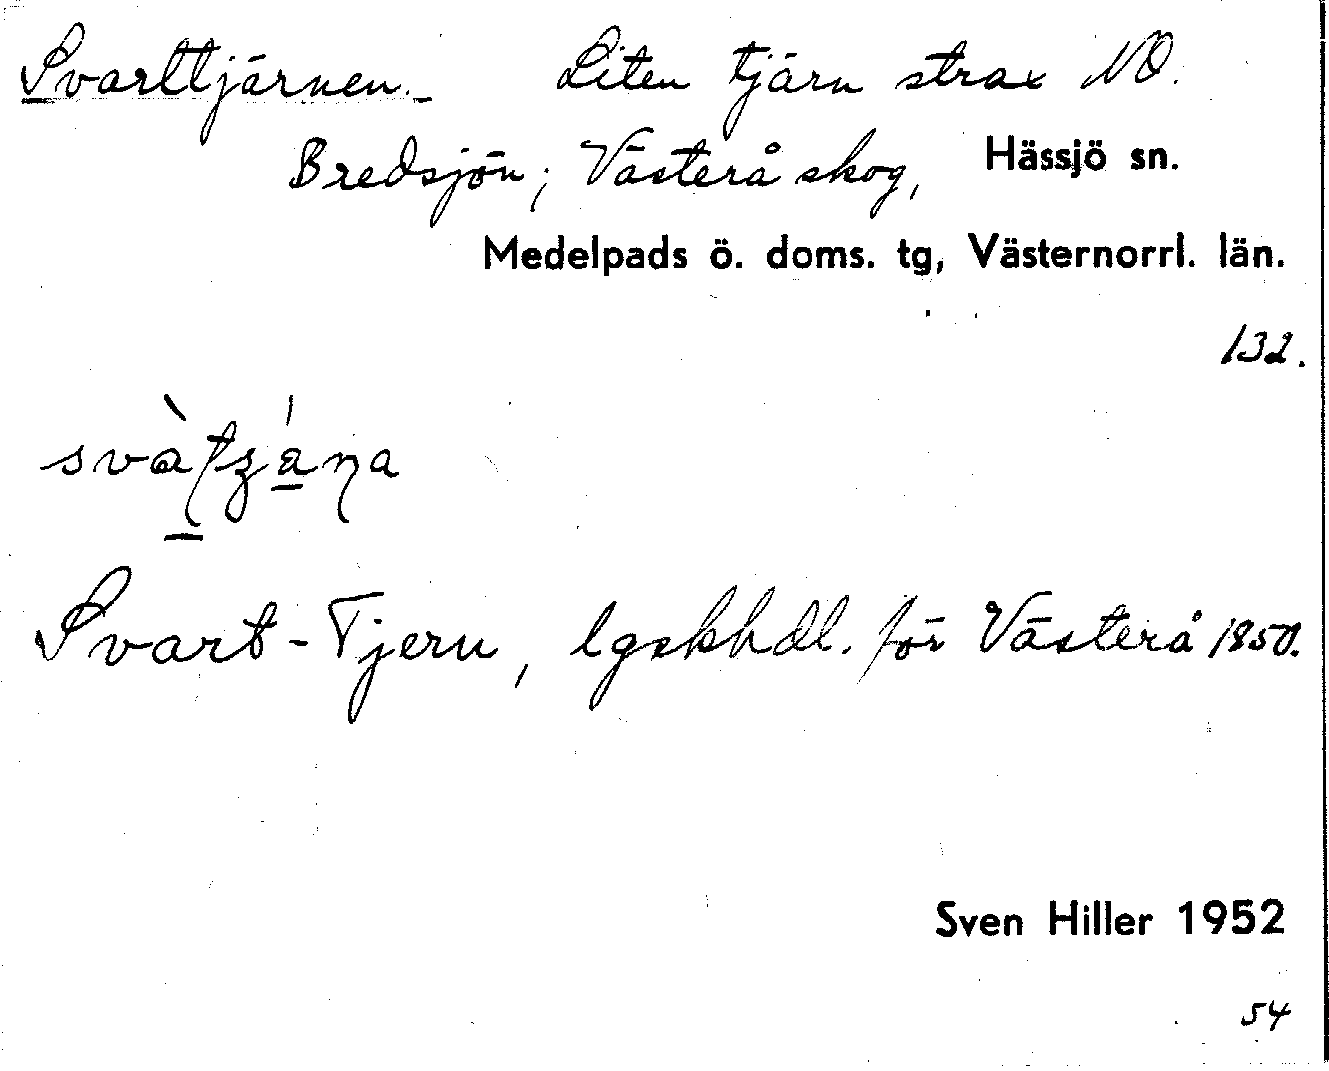 Svarttjärnen. Liten tjärn strax NO.
Bredsjön; Västerå skog, Hässjö sn.
Medelpads ö. doms. tg, Västernorrl. län.
132.
Svart-Tjern, lgskhdl. för Västerå 1850.
Sven Hiller 1952
54